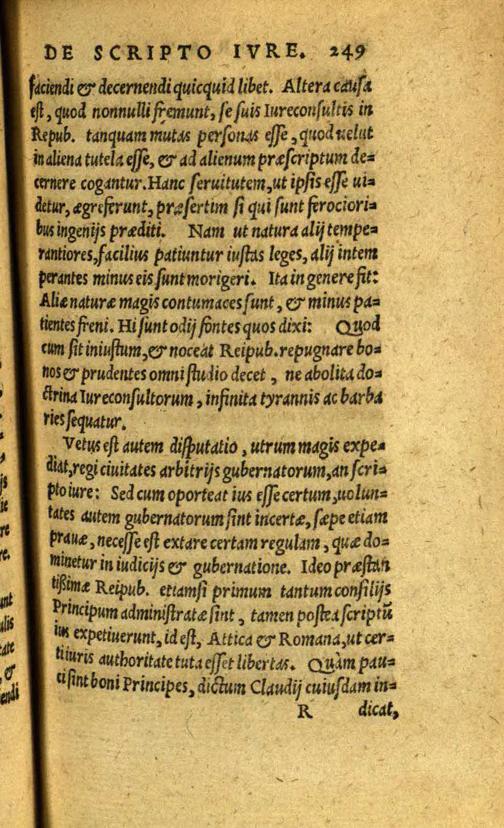 DE SCRIPTO IVRE. 249
faciendi & decernendi quicquid libet. Altera causa
est, quod nonnulli fremunt, se suis Iureconsultis in
Repub. tanquam mutas personas esse, quod uelut
in aliena tutela esse, & ad alienum præscriptum de=
cernere cogantur. Hanc seruitutem, ut ipsis esse ui=
detur, ægreferunt, præsertim si qui sunt ferociori=
bus ingenijs præditi. Nam ut natura alij tempe=
rantiores, facilius patiuntur iustas leges, alij intem
perantes minus eis sunt morigeri. Ita in genere fit:
Aliæ naturæ magis contumaces sunt, & minus pa=
tientes freni. Hi sunt odij fontes quos dixi: Quod
cum sit iniustum, & noceat Reipub. repugnare bo=
nos & prudentes omni studio decet, ne abolita do=
ctrina Iureconsultorum, infinita tyrannis ac barba
ries sequatur.
Vetus est autem disputatio, utrum magis expe=
diat, regi ciuitates arbitrijs gubernatorum, an scri=
pto iure: Sed cum oporteat ius esse certum, uolun=
tates autem gubernatorum sint incertæ, sæpe etiam
prauæ, necesse est extare certam regulam, quæ do=
minetur in iudicijs & gubernatione. Ideo præstan
tißimæ Reipub. etiamsi primum tantum consilijs
Principum administratæ sint, tamen postea scriptũ
ius expetiuerunt, id est, Attica & Romana, ut cer=
ti iuris authoritate tuta esset libertas. Quàm pau=
ci sint boni Principes, dictum Claudij cuiusdam in=
R dicat,